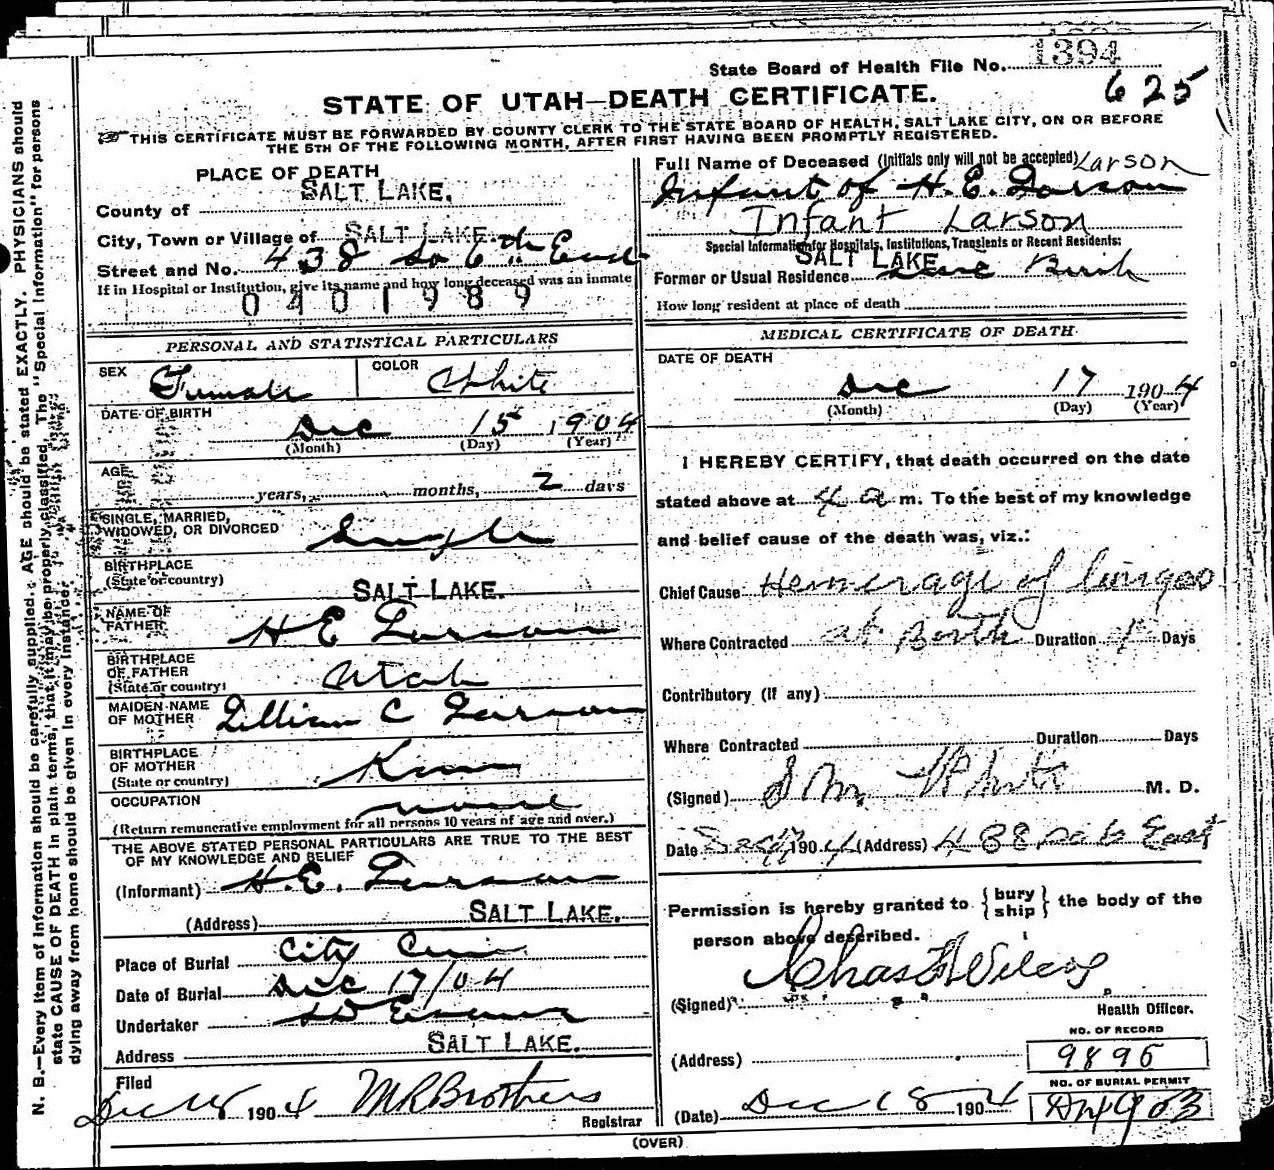 1394
State Board of Health File No.
625
STATE OF UTAH—DEATH CERTIFICATE.
THIS CERTIFICATE MUST BE FORWARDED BY COUNTY CLERK TO THE STATE BOARD OF HEALTH, SALT LAKE CITY, ON OR BEFORE
THE 5TH OF THE FOLLOWING MONTH, AFTER FIRST HAVING BEEN PROMPTLY REGISTERED.
PLACE OF DEATH
County of SALT LAKE.
City, Town or Village of SALT LAKE.
Street and No. 438 So 6th East
If in Hospital or Institution, give its name and how long deceased was an inmate
0401989
Full Name of Deceased (Initials only will not be accepted) Larson
Infant of H. E. Larson
Infant Larson
Special Information for Hospitals, Institutions, Transients or Recent Residents:
SALT LAKE
Former or Usual Residence Since Birth
How long resident at place of death
PERSONAL AND STATISTICAL PARTICULARS
SEX Female COLOR White
DATE OF BIRTH
Dec 15 1904
(Month) (Day) (Year)
AGE
years, months, 2 days
SINGLE, MARRIED,
WIDOWED, OR DIVORCED Single
BIRTHPLACE
(State or country) SALT LAKE.
NAME OF
FATHER H E Larson
BIRTHPLACE
OF FATHER
(State or country) Utah
MAIDEN NAME
OF MOTHER Lillian C Larson
BIRTHPLACE
OF MOTHER
(State or country)
OCCUPATION none
(Return remunerative employment for all persons 10 years of age and over.)
THE ABOVE STATED PERSONAL PARTICULARS ARE TRUE TO THE BEST
OF MY KNOWLEDGE AND BELIEF
(Informant) H. E. Larson
(Address) SALT LAKE.
Place of Burial City Cem
Date of Burial Dec 17/04
Undertaker S D Evans
Address SALT LAKE.
Filed
Dec 1904 M R Brothers
Registrar
MEDICAL CERTIFICATE OF DEATH
DATE OF DEATH
Dec 17 1904
(Month) (Day) (Year)
I HEREBY CERTIFY, that death occurred on the date
stated above at 4 a m. To the best of my knowledge
and belief cause of the death was, viz.:
Chief Cause Hemerage of lungs
Where Contracted at Birth Duration Days
Contributory (if any)
Where Contracted Duration Days
(Signed) White M. D.
Date Dec 1904 (Address) 438 So 6 East
Permission is hereby granted to {bury
ship} the body of the
person above described.
(Signed) Chas
Health Officer.
NO. OF RECORD
(Address) 9895
NO. OF BURIAL PERMIT
(Date) Dec 18 1904
(OVER)
N. B.—Every item of information should be carefully supplied. AGE should be stated EXACTLY. PHYSICIANS should
state CAUSE OF DEATH in plain terms, that it may be properly classified. The "Special Information" for persons
dying away from home should be given in every instance.